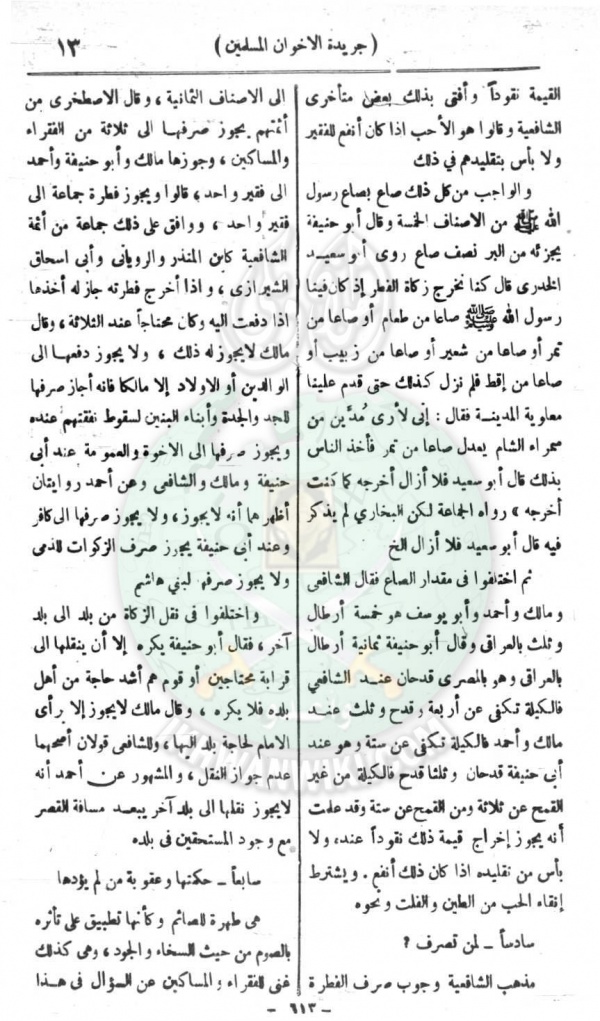 ( جريدة الاخوان المسلمين )
١٣
القيمة نقوداً وأفتى بذلك بعض متأخرى
الشافعية وقالوا هو الأحب اذا كان أنفع للفقير
ولا بأس بتقليدهم في ذلك
والواجب من كل ذلك صاع بصاع رسول
الله ﷺ من الأصناف الخمسة وقال أبو حنيفة
يجزئه من البر نصف صاع روى أبو سعيد
الخدرى قال كنا نخرج زكاة الفطر إذ كان فينا
رسول الله ﷺ صاعا من طعام أو صاعا من
تمر أو صاعا من شعير أو صاعا من زبيب أو
صاعا من إقط فلم نزل كذلك حتى قدم علينا
معاوية المدينة فقال : إنى لأرى مُدَّين من
سمراء الشام يعدل صاعا من تمر فأخذ الناس
بذلك قال أبو سعيد فلا أزال أخرجه كما كنت
أخرجه » رواه الجماعة لكن البخارى لم يذكر
فيه قال أبو سعيد فلا أزال الخ
ثم اختلفوا فى مقدار الصاع فقال الشافعى
ومالك وأحمد وأبو يوسف هو خمسة أرطال
وثلث بالعراقى وقال أبو حنيفة ثمانية أرطال
بالعراقى وهو بالمصرى قدحان عند الشافعي
فالكيلة تكفى عن أربعة وقدح وثلث عند
مالك وأحمد فالكيلة تكفى عن ستة وهو عند
أبى حنيفة قدحان وثلثا قدح فالكيلة من غير
القمح عن ثلاثة ومن القمح عن ستة وقد علمت
أنه يجوز إخراج قيمة ذلك نقوداً عند، ولا
بأس من تقليده اذا كان ذلك أنفع . ويشترط
إنقاء الحب من الطين والفلت ونحوه
سادساً ــ لمن تصرف ؟
مذهب الشافعية وجوب صرف الفطرة
الى الاصناف الثمانية ، وقال الاصطخرى من
أئمتهم يجوز صرفها الى ثلاثة من الفقراء
والمساكين ، وجوزها مالك وأبو حنيفة وأحمد
الى فقير واحد ، قالوا ويجوز فطرة جماعة الى
فقير واحد ، ووافق على ذلك جماعة من أئمة
الشافعية كابن المنذر والرويانى وأبى اسحاق
الشيرازى ، واذا أخرج فطرته جاز له أخذها
اذا دفعت اليه وكان محتاجاً عند الثلاثة ، وقال
مالك لايجوز له ذلك ، ولا يجوز دفعها الى
الوالدين أو الاولاد إلا مالكا فانه أجاز صرفها
للجد والجدة وأبناء البنين لسقوط نفقتهم عنده
ويجوز صرفها الى الاخوة والعمومة عند أبى
حنيفة ومالك والشافعى وعن أحمد روايتان
أظهرهما أنه لايجوز ، ولا يجوز صرفها الى كافر
وعند أبى حنيفة يجوز صرف الزكوات للذمى
ولا يجوز صرفها لبنى هاشم
واختلفوا فى نقل الزكاة من بلد الى بلد
آخر ، فقال أبو حنيفة يكره إلا أن ينقلها الى
قرابة محتاجين أو قوم هم أشد حاجة من أهل
بلده فلا يكره ، وقال مالك لايجوز إلا رأى
الامام لحاجة بلد اليها ، وللشافعى قولان أصحهما
عدم جواز النقل ، والمشهور عن أحمد أنه
لايجوز نقلها الى بلد آخر يبعد مسافة القصر
مع وجود المستحقين فى بلده
سابعاً ــ حكمتها وعقوبة من لم يؤدها
هى طهرة للصائم وكأنها تطبيق على تأثره
بالصوم من حيث السخاء والجود ، وهى كذلك
غنى للفقراء والمساكين عن السؤال فى هذا
ــ ٦١٣ ــ
IKHWANWIKI.COM